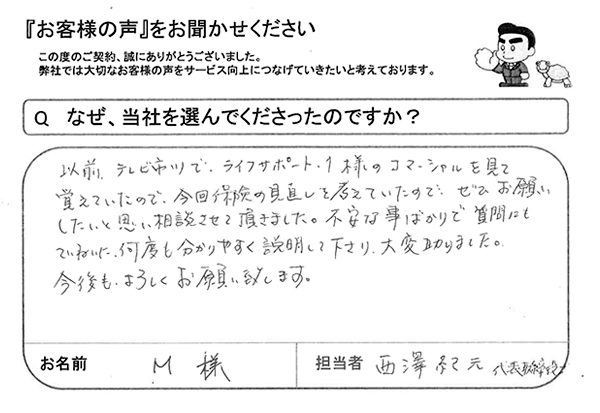 『お客様の声』をお聞かせください
この度のご契約、誠にありがとうございました。
弊社では大切なお客様の声をサービス向上につなげていきたいと考えております。
Q なぜ、当社を選んでくださったのですか？
以前、テレビ市川で、ライフサポート・1様のコマーシャルを見て
覚えていたので、今回保険の見直しを考えていたので、ぜひお願い
したいと思い相談させて頂きました。不安な事ばかりで質問にも
ていねいに、何度も分かりやすく説明して下さり、大変助りました。
今後も、よろしくお願い致します。
お名前 M 様
担当者 西澤 元 代表取締役